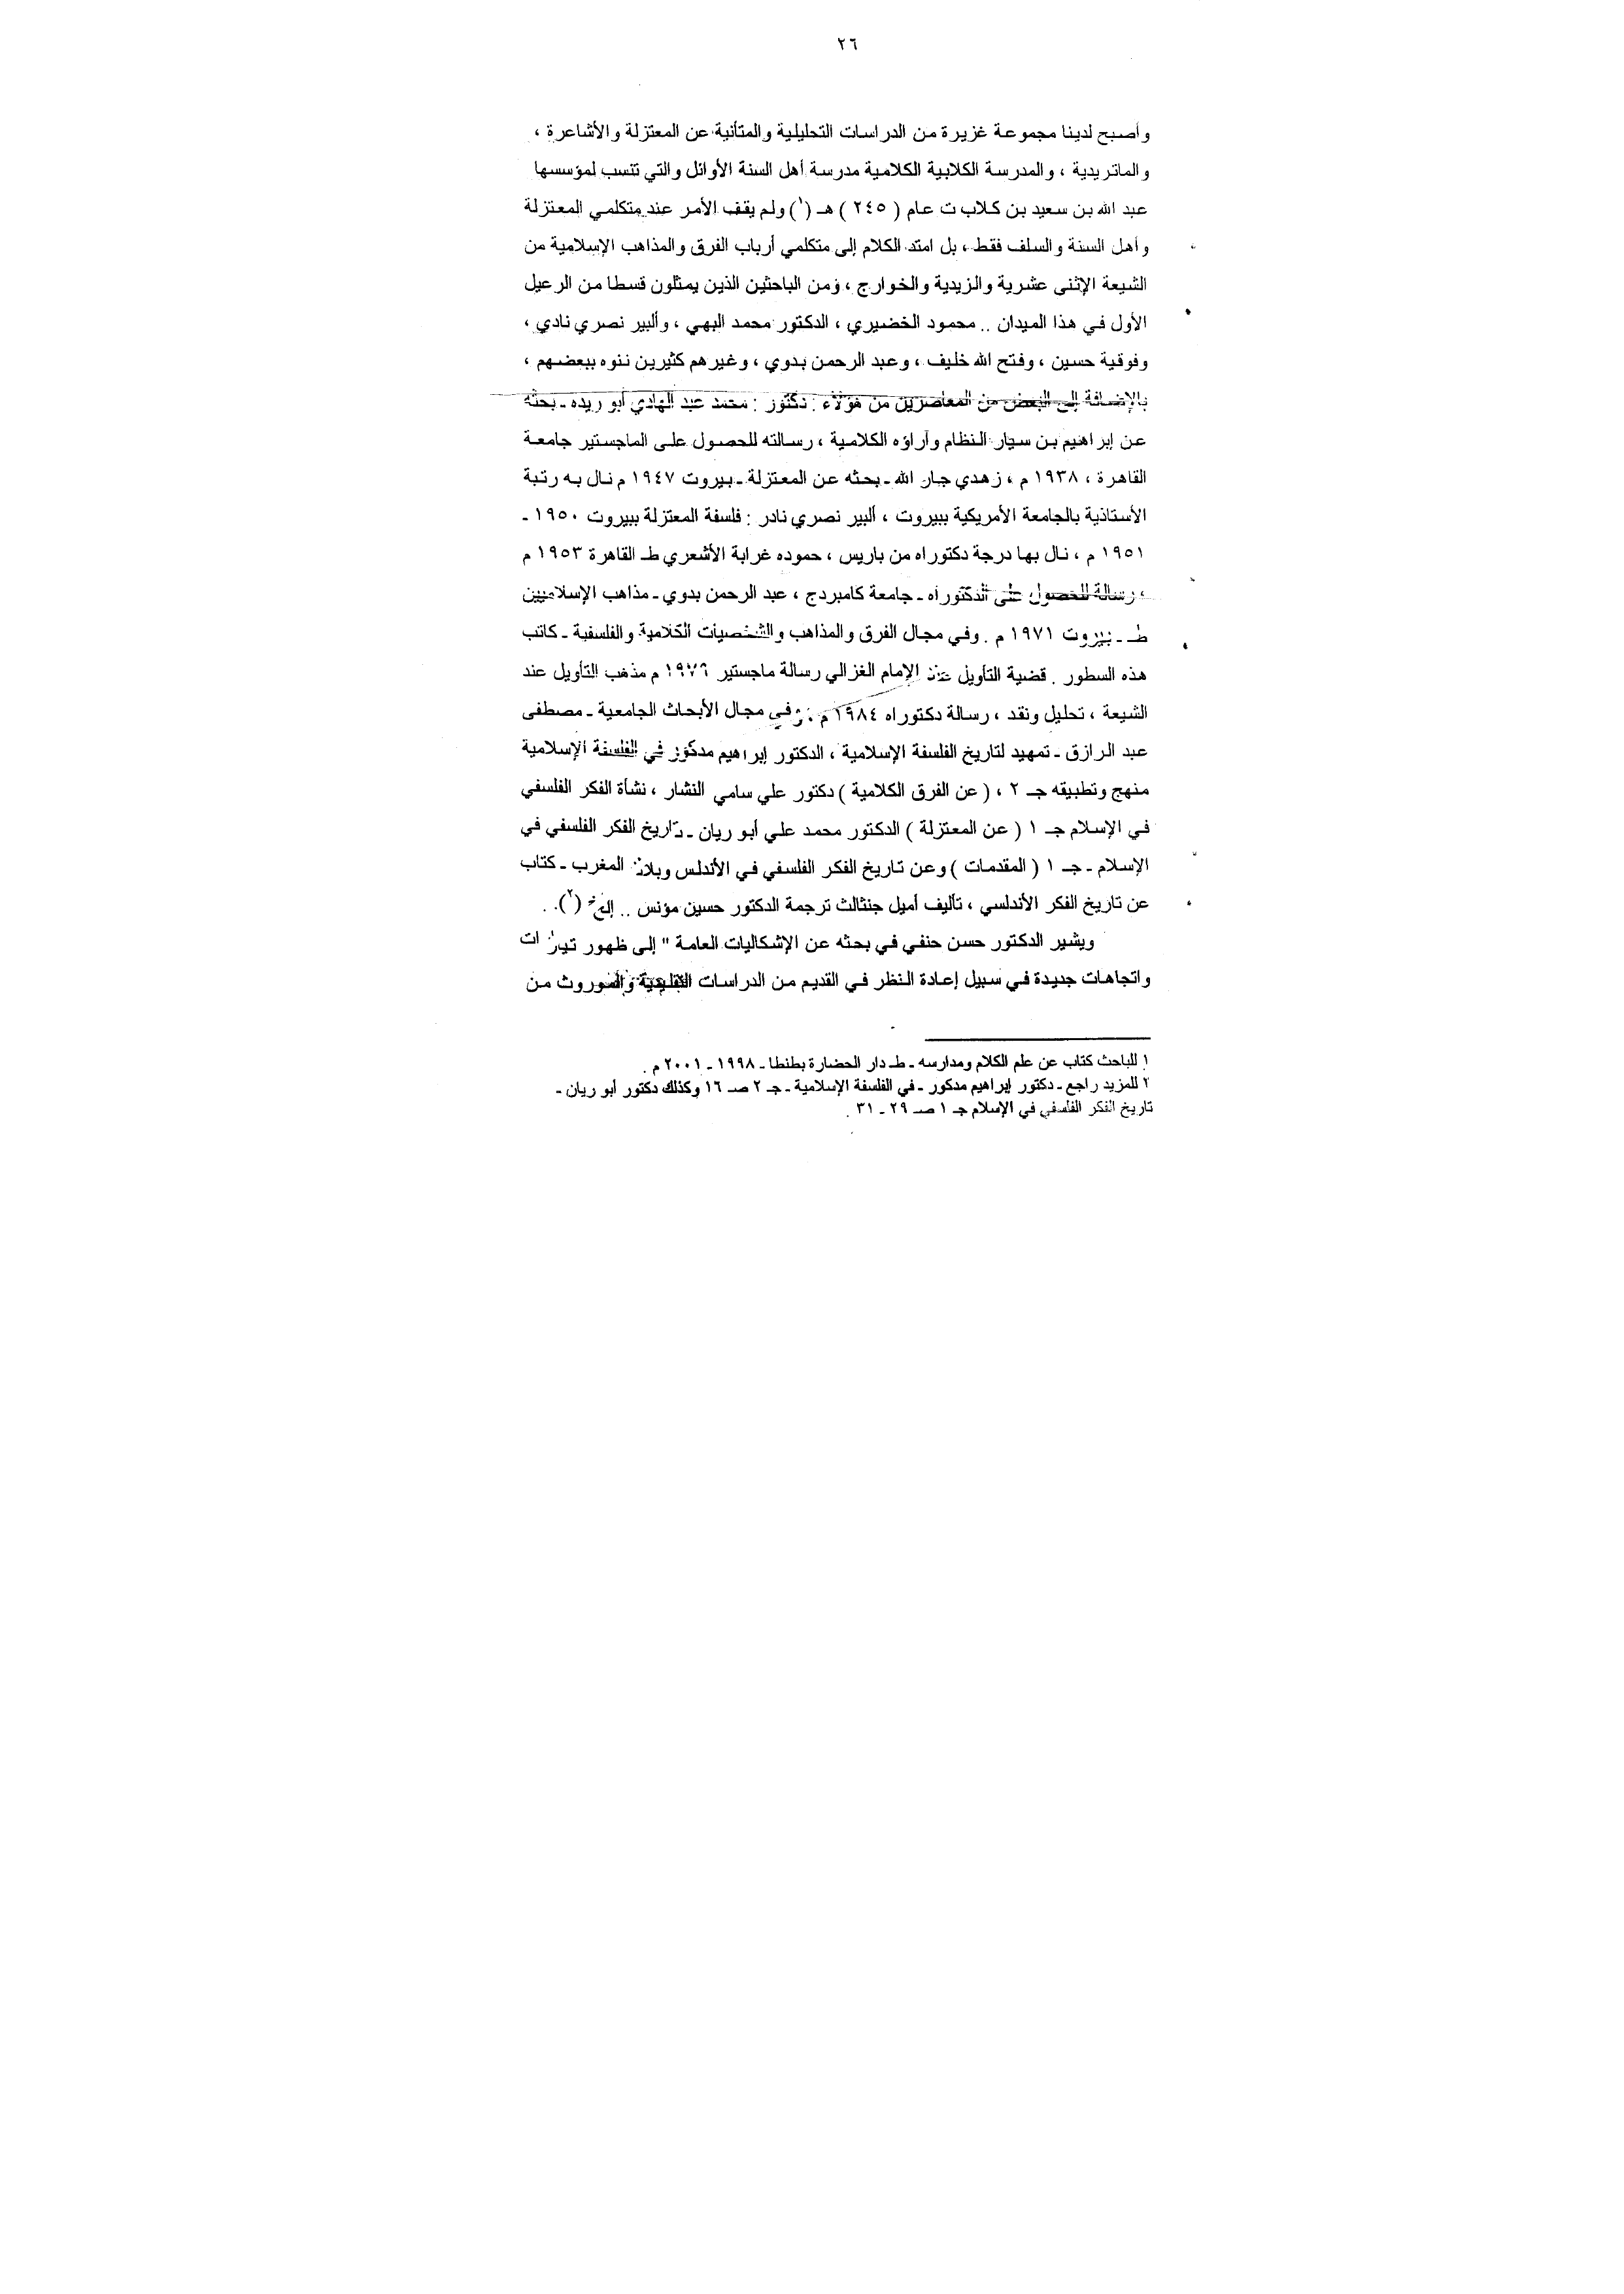 ٢٦
وأصبح لدينا مجموعة غزيرة من الدراسات التحليلية والمتأنية عن المعتزلة والأشاعرة ،
والماتريدية ، والمدرسة الكلابية الكلامية مدرسة أهل السنة الأوائل والتي تنسب لمؤسسها
عبد الله بن سعيد بن كلاب ت عام ( ٢٤٥ ) هـ (١) ولم يقف الأمر عند متكلمي المعتزلة
وأهل السنة والسلف فقط ، بل امتد الكلام إلى متكلمي أرباب الفرق والمذاهب الإسلامية من
الشيعة الإثنى عشرية والزيدية والخوارج ، ومن الباحثين الذين يمثلون قسطا من الرعيل
الأول في هذا الميدان .. محمود الخضيري ، الدكتور محمد البهي ، وألبير نصري نادي ،
وفوقية حسين ، وفتح الله خليف ، وعبد الرحمن بدوي ، وغيرهم كثيرين ننوه ببعضهم ،
بالإضافة إلى البعض من المعاصرين من هؤلاء : دكتور : محمد عبد الهادي أبو ريده ـ بحثه
عن إبراهيم بن سيار النظام وآراؤه الكلامية ، رسالته للحصول على الماجستير جامعة
القاهرة ، ١٩٣٨ م ، زهدي جار الله ـ بحثه عن المعتزلة ـ بيروت ١٩٤٧ م نال به رتبة
الأستاذية بالجامعة الأمريكية ببيروت ، ألبير نصري نادر : فلسفة المعتزلة ببيروت ١٩٥٠ ـ
١٩٥١ م ، نال بها درجة دكتوراه من باريس ، حموده غرابة الأشعري طـ القاهرة ١٩٥٣ م
، رسالة للحصول على الدكتوراه ـ جامعة كامبردج ، عبد الرحمن بدوي ـ مذاهب الإسلاميين
طـ ـ بيروت ١٩٧١ م . وفي مجال الفرق والمذاهب والشخصيات الكلامية والفلسفية ـ كاتب
هذه السطور . قضية التأويل عند الإمام الغزالي رسالة ماجستير ١٩٧٦ م مذهب التأويل عند
الشيعة ، تحليل ونقد ، رسالة دكتوراه ١٩٨٤ م . وفي مجال الأبحاث الجامعية ـ مصطفى
عبد الرازق ـ تمهيد لتاريخ الفلسفة الإسلامية ، الدكتور إبراهيم مدكور في الفلسفة الإسلامية
منهج وتطبيقه جـ ٢ ، ( عن الفرق الكلامية ) دكتور علي سامي النشار ، نشأة الفكر الفلسفي
في الإسلام جـ ١ ( عن المعتزلة ) الدكتور محمد علي أبو ريان ـ تاريخ الفكر الفلسفي في
الإسلام ـ جـ ١ ( المقدمات ) وعن تاريخ الفكر الفلسفي في الأندلس وبلاد المغرب ـ كتاب
عن تاريخ الفكر الأندلسي ، تأليف أميل جنثالث ترجمة الدكتور حسين مؤنس .. إلخ (٢) .
ويشير الدكتور حسن حنفي في بحثه عن الإشكاليات العامة " إلى ظهور تيارات
واتجاهات جديدة في سبيل إعادة النظر في القديم من الدراسات التقليدية والموروث من
١ للباحث كتاب عن علم الكلام ومدارسه ـ طـ دار الحضارة بطنطا ـ ١٩٩٨ ـ ٢٠٠١ م .
٢ للمزيد راجع ـ دكتور إبراهيم مدكور ـ في الفلسفة الإسلامية ـ جـ ٢ صـ ١٦ وكذلك دكتور أبو ريان ـ
تاريخ الفكر الفلسفي في الإسلام جـ ١ صـ ٢٩ ـ ٣١ .